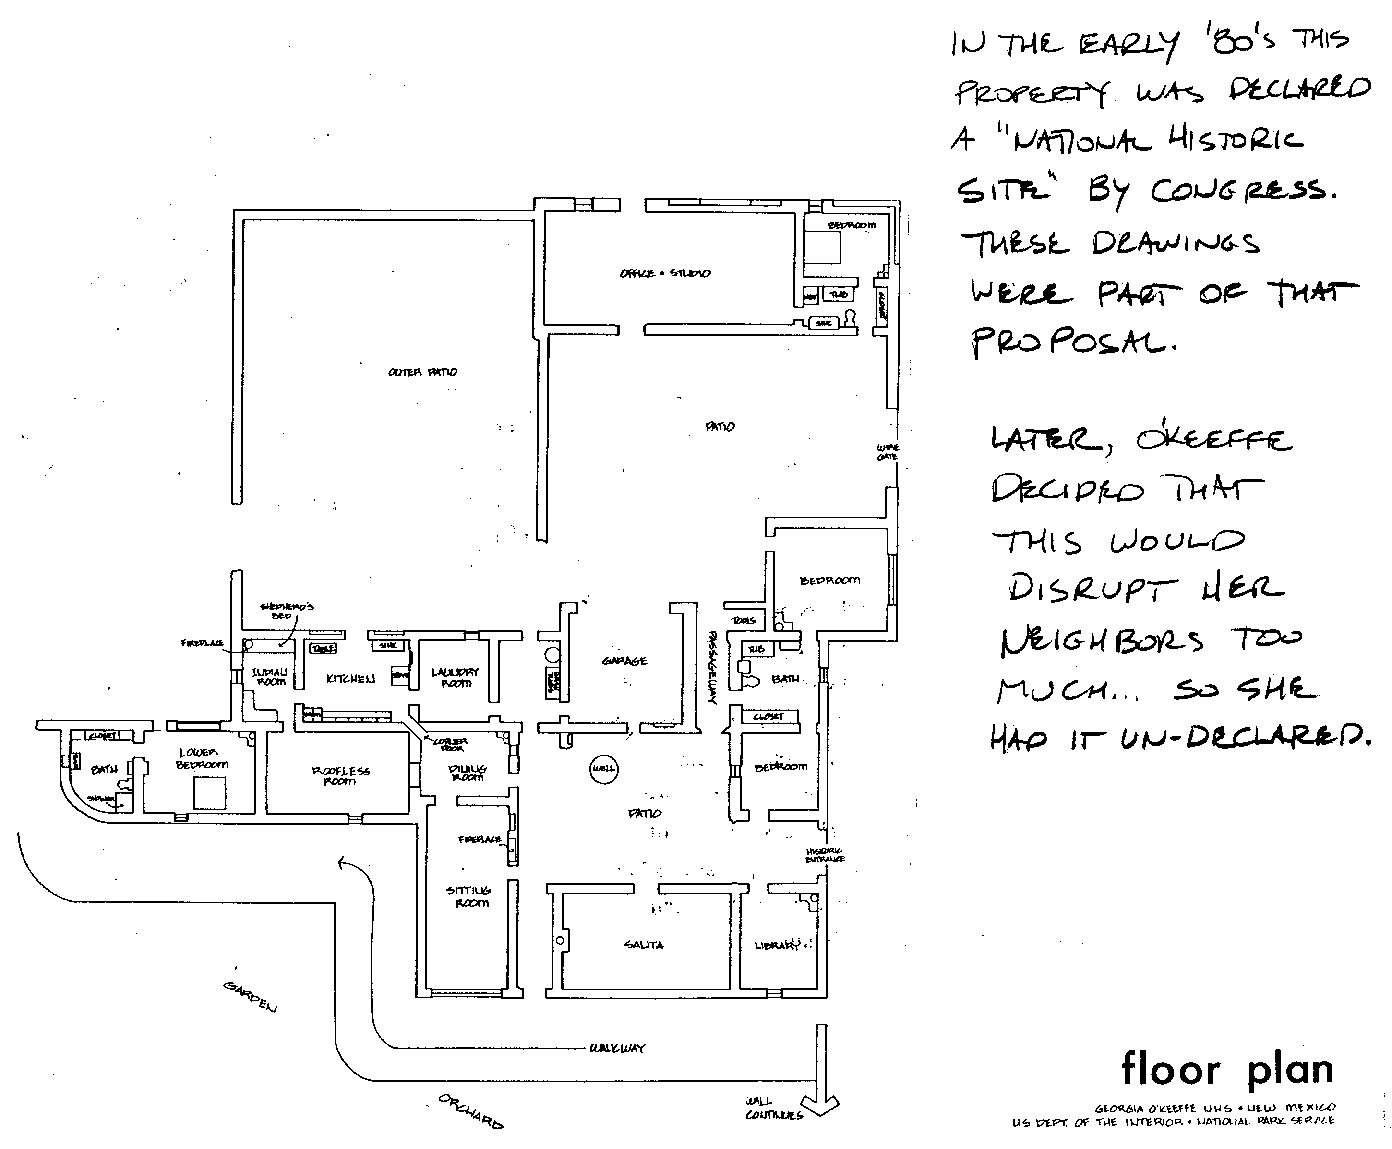 IN THE EARLY '80'S THIS
PROPERTY WAS DECLARED
A "NATIONAL HISTORIC
SITE" BY CONGRESS.
THESE DRAWINGS
WERE PART OF THAT
PROPOSAL.
LATER, O'KEEFFE
DECIDED THAT
THIS WOULD
DISRUPT HER
NEIGHBORS TOO
MUCH... SO SHE
HAD IT UN-DECLARED.
BEDROOM
OFFICE • STUDIO
TUB
CLOSET
SINK
OUTER PATIO
PATIO
WIRE
GATE
BEDROOM
SHEPHERD'S
BED
TOOLS
FIREPLACE
TABLE
SINK
PASSAGEWAY
TUB
INDIAN
ROOM
KITCHEN
LAUNDRY
ROOM
GARAGE
BATH
CLOSET
CLOSET
LOWER
BEDROOM
BATH
SHOWER
ROOFLESS
ROOM
CORNER
DOOR
DINING
ROOM
WELL
BEDROOM
PATIO
FIREPLACE
HISTORIC
ENTRANCE
SITTING
ROOM
SALITA
LIBRARY
GARDEN
WALKWAY
ORCHARD
WALL
CONTINUES
floor plan
GEORGIA O'KEEFFE NHS • NEW MEXICO
US DEPT. OF THE INTERIOR • NATIONAL PARK SERVICE